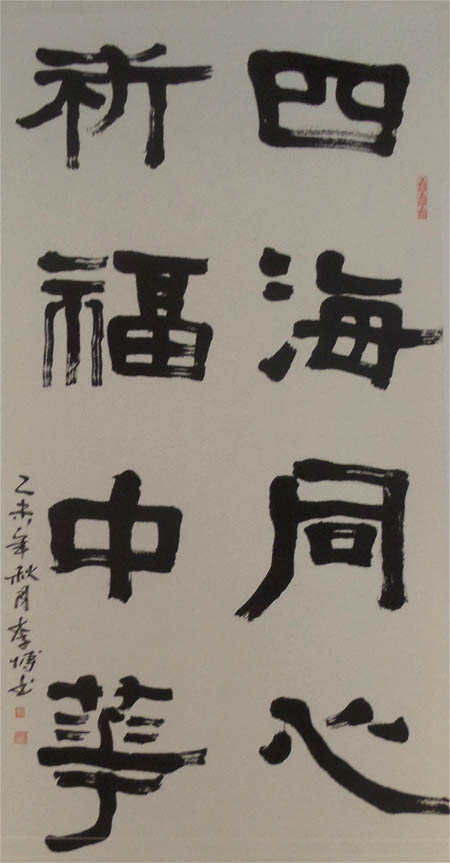 四海同心
祈福中華
乙未年秋月李博书